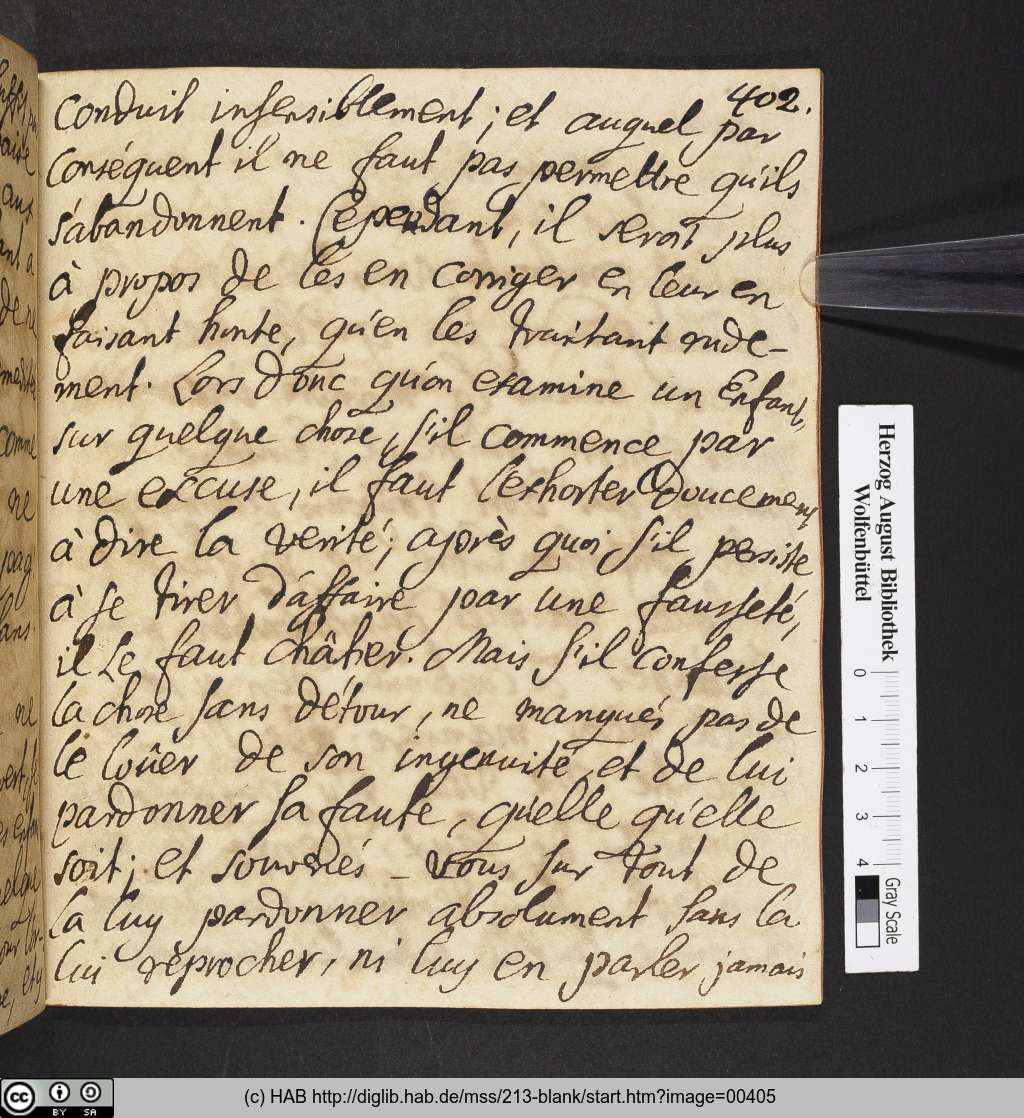 402.
Conduit insensiblement; et auquel par
Conséquent il ne faut pas permettre qu'ils
s'abandonnent. Cependant, il seroit plus
à propos de les en corriger en leur en
faisant honte, qu'en les traitant rude-
ment. Lors donc qu'on examine un Enfant,
sur quelque chose, s'il commence par
une excuse, il faut l'exhorter doucement
à dire la verité; après quoi s'il persiste
à se tirer d'affaire par une fausseté,
il Le faut châtier. Mais s'il confesse
la chose sans détour, ne manqués pas de
le loüer de son ingenuité, et de lui
pardonner sa faute, qu'elle qu'elle
soit; et souvenés-vous sur tout de
la luy pardonner absolument sans la
lui reprocher, ni luy en parler jamais
Herzog August Bibliothek
Wolfenbüttel
0 1 2 3 4
Gray Scale
cc BY SA
(c) HAB http://diglib.hab.de/mss/213-blank/start.htm?image=00405